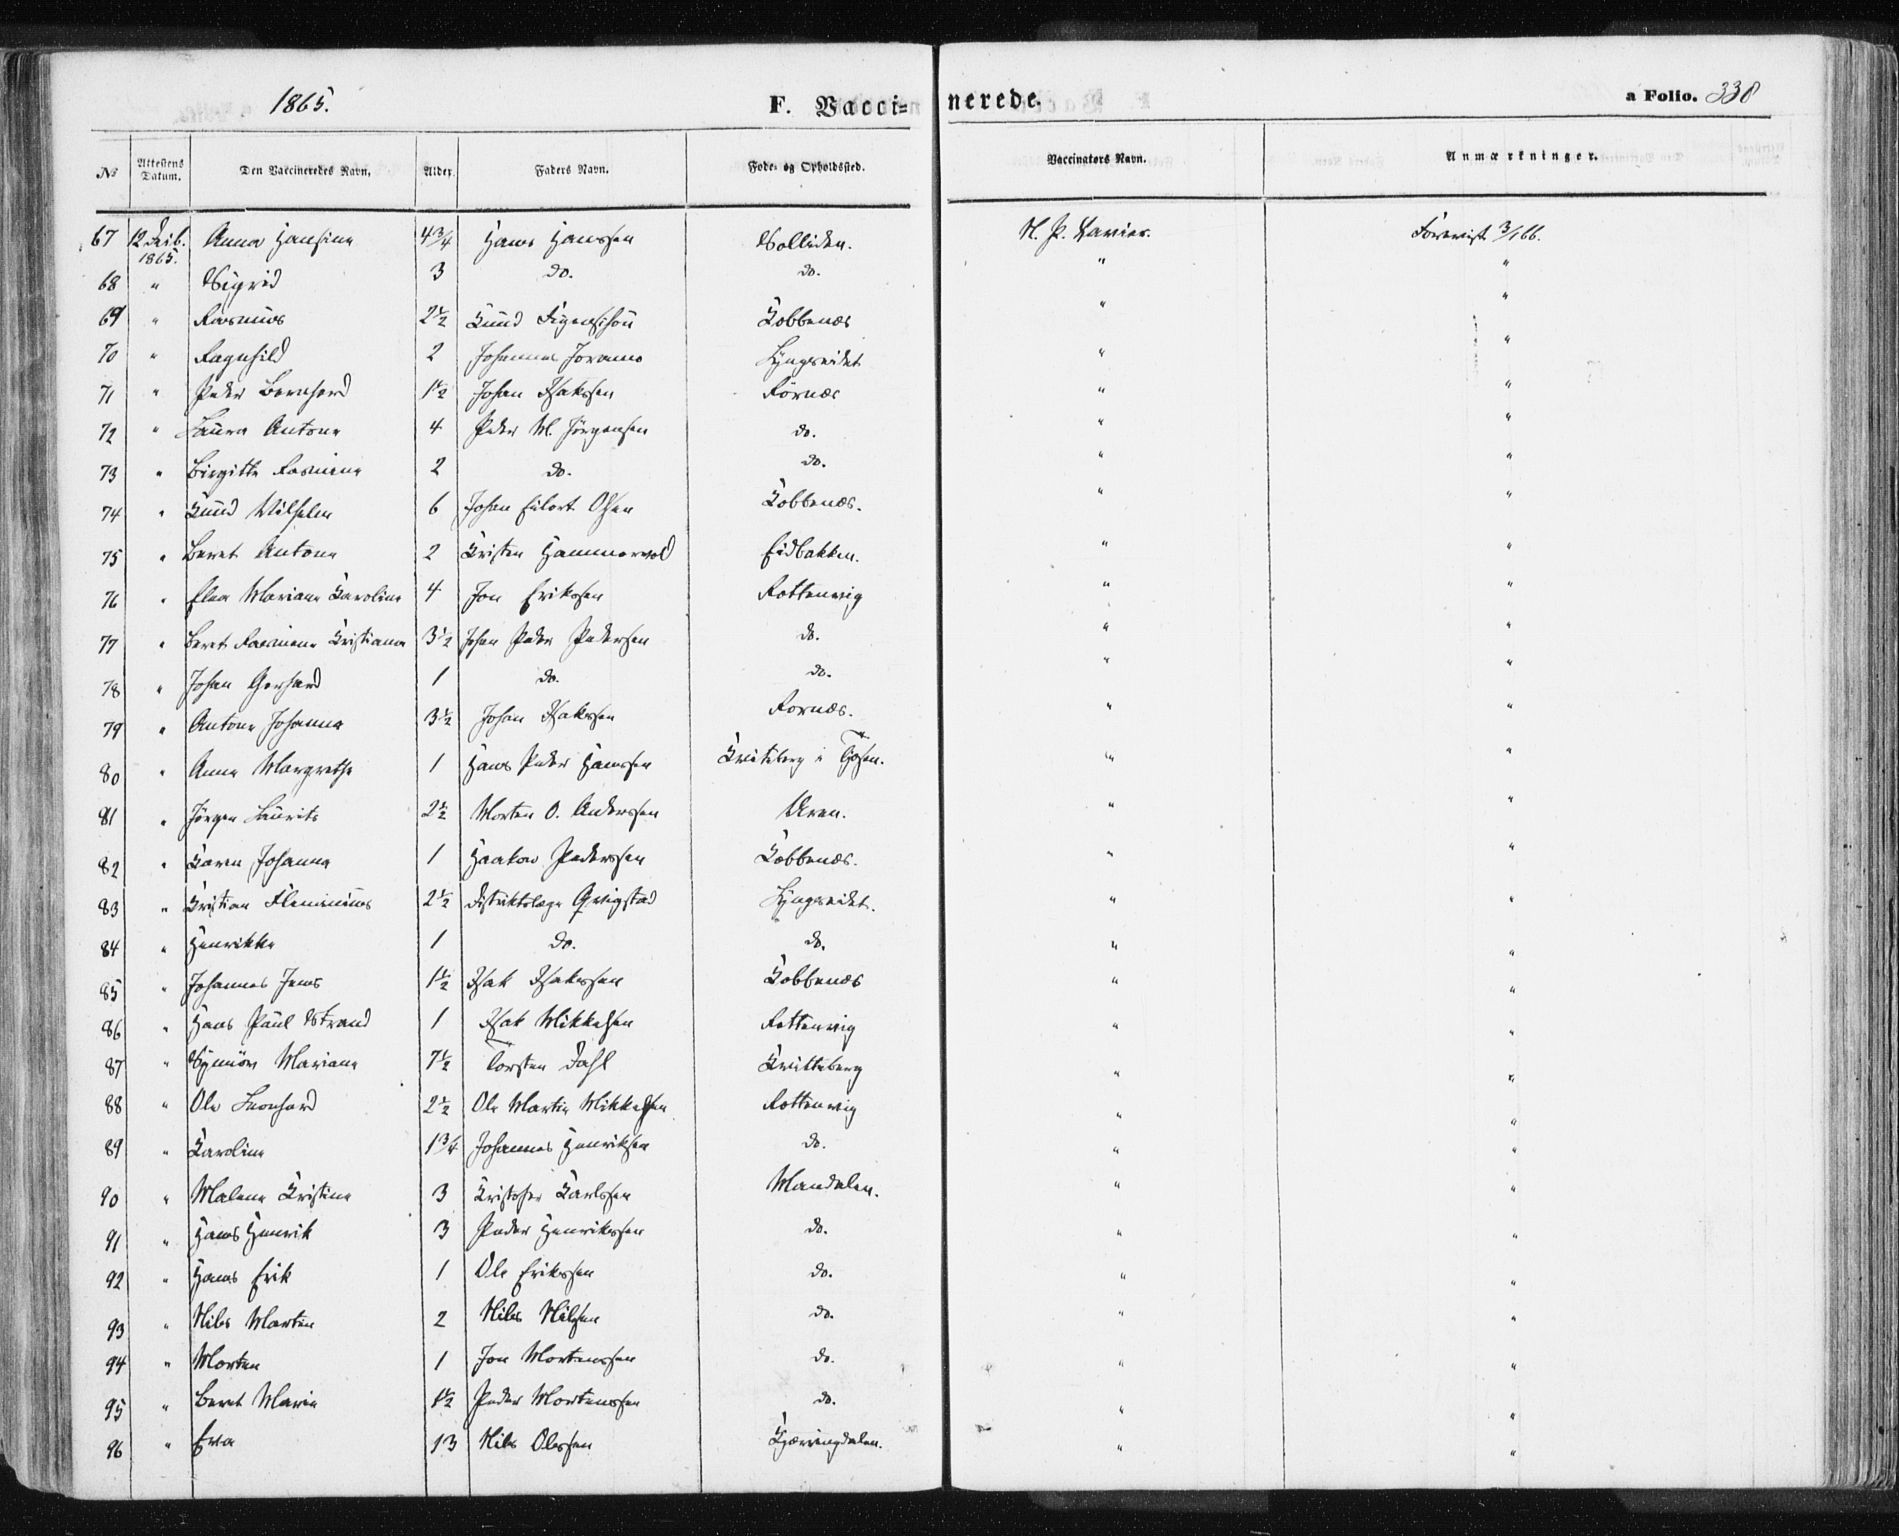 1865. F. Vaccinerede. a Folio. 338
No Attestens Datum. Den Vaccineredes Navn. Alder. Faders Navn. Føde- og Opholdssted. Vaccinators Navn. Anmærkninger.
67 12 1865. Anna Hansine 4 3/4 Hans Hanssen Solliden. H. P. 3/1 66.
68 " Sigrid 3 do. do. " "
69 " Rasmus 2 1/2 Knud Kobbenæs " "
70 " Ragnhild 2 Johannes Lyngseidet " "
71 " Peder Bernhard 1 1/2 Johan Isaksen Rørnæs " "
72 " Laura Antone 4 Peder M. Jørgensen do. " "
73 " Birgitte Rasmine 2 do. do. " "
74 " Knud Vilhelm 6 Johan Eilert Olsen Kobbenæs. " "
75 " Beret Antone 2 Kristen Hammervold Eidbakken. " "
76 " Elen Mariane Karoline 4 Jon Erikssen Rottenvig " "
77 " Beret Rasmine Kristiana 3 1/2 Johan Peder Pedersen do. " "
78 " Johan Gerhard 1 do. do. " "
79 " Antone Johanna 3 1/2 Johan Isakssen Rornæs. " "
80 " Anne Margrethe 1 Hans Peder Hanssen Kviteberg i " "
81 " Jørgen Laurits 2 1/2 Morten O. Anderssen Uren. " "
82 " Karen Johanna 1 Haakon Pederssen Kobbenæs. " "
83 " Kristian Flemmius 2 1/2 Distriktslæge Qvigstad Lyngseidet. " "
84 " Henrikke 1 do. do. " "
85 " Johannes Jens 1 1/2 Isak Isakssen Kobbenæs " "
86 " Hans Paul Strand 1 Isak Mikkelsen Rottenvig " "
87 " Synnøv Mariane 7 1/2 Torsten Dahl Kvitteberg " "
88 " Ole Leonhard 2 1/2 Ole Martin Mikkelsen Rottenvig " "
89 " Karoline 1 3/4 Johannes Henriksen do. " "
90 " Malene Kristine 3 Kristofer Karlssen Mandalen. " "
91 " Hans Henrik 3 Peder Henrikssen do. " "
92 " Hans Erik 1 Ole Erikssen do. " "
93 " Nils Martin 2 Nils Nilsen do. " "
94 " Morten 1 Jon Mortenssen do. " "
95 " Beret Marie 1 1/2 Peder Mortenssen do. " "
96 " Eva 13 Nils Olessen Kjærringdalen. " "